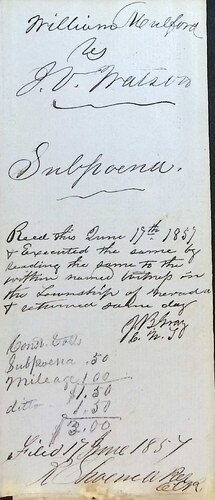 William Mulford
vs
J. V. Watson
Subpoena.
Recd this June 17th 1857
& Executed the same by
reading the same to the
within named witness in
the Township of Nevada
& returned same day
J B Gray
C. N. T
Const. Costs
Subpoena .50
Mileage 1.00
$1.50
ditto 1.50
$3.00
Filed 17 June 1857
Clk.